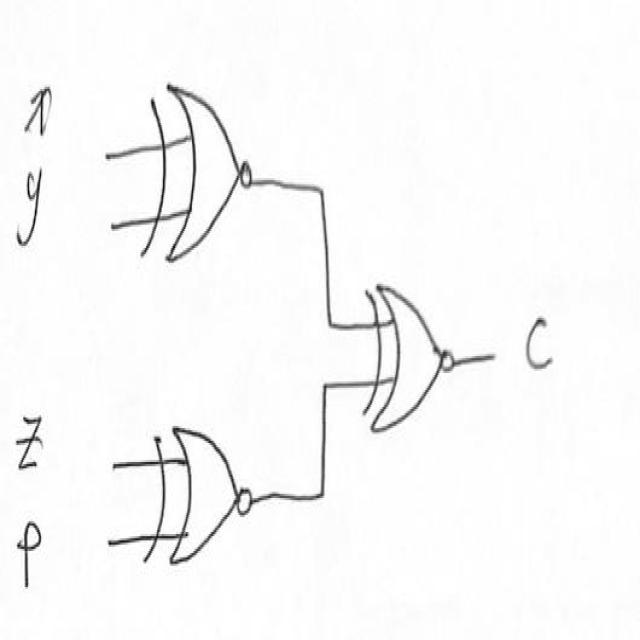 x
y
z
p
C